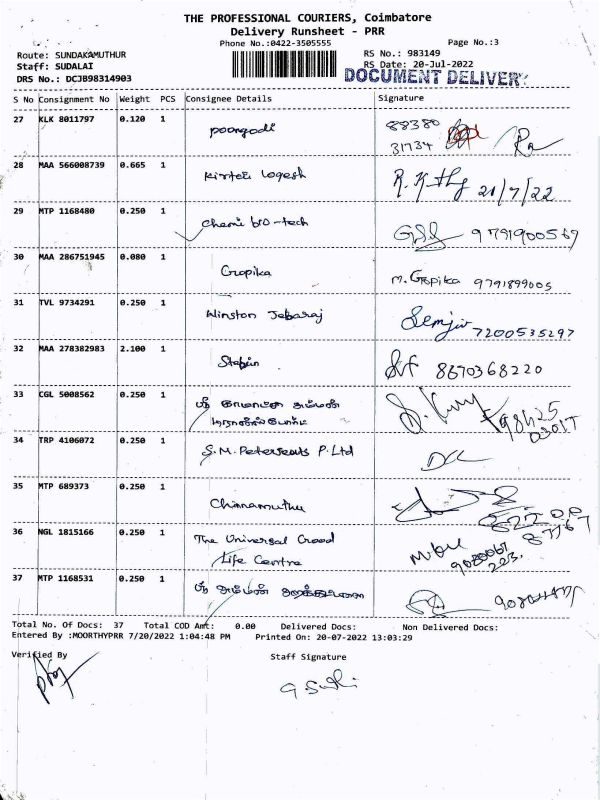 THE PROFESSIONAL COURIERS, Coimbatore
Delivery Runsheet - PRR
Phone No.:0422-3505555
Page No.:3
Route: SUNDAKAMUTHUR
RS No.: 983149
Staff: SUDALAI
RS Date: 20-Jul-2022
DRS No.: DCJB98314903
DOCUMENT DELIVERY
S No Consignment No Weight PCS Consignee Details Signature
27 KLK 8011797 0.120 1 poongodi 88380
31734
28 MAA 566008739 0.665 1 Logesh 21/7/22
29 MTP 1168480 0.250 1 Chemi bio-tech 9791900569
30 MAA 286751945 0.080 1 Gopika M. Gopika 9791899005
31 TVL 9734291 0.250 1 Winston Jebaraj 7200535297
32 MAA 278382983 2.100 1 Stephin 8670368220
33 CGL 5008562 0.250 1 ஸ்ரீ காமாட்சி அம்மன்
34 TRP 4106072 0.250 1 S.M. P.Ltd
35 MTP 689373 0.250 1 Chinnamuthu
36 NGL 1815166 0.250 1 The Universal
Life Centre
37 MTP 1168531 0.250 1 ஸ்ரீ அம்மன்
Total No. Of Docs: 37 Total COD Amt: 0.00 Delivered Docs: Non Delivered Docs:
Entered By :MOORTHYPRR 7/20/2022 1:04:48 PM Printed On: 20-07-2022 13:03:29
Verified By Staff Signature